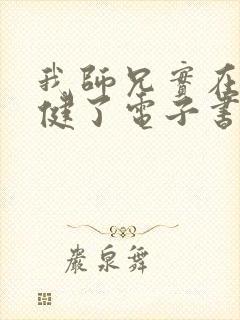 我師兄實在
健了電子書
嚴泉舞